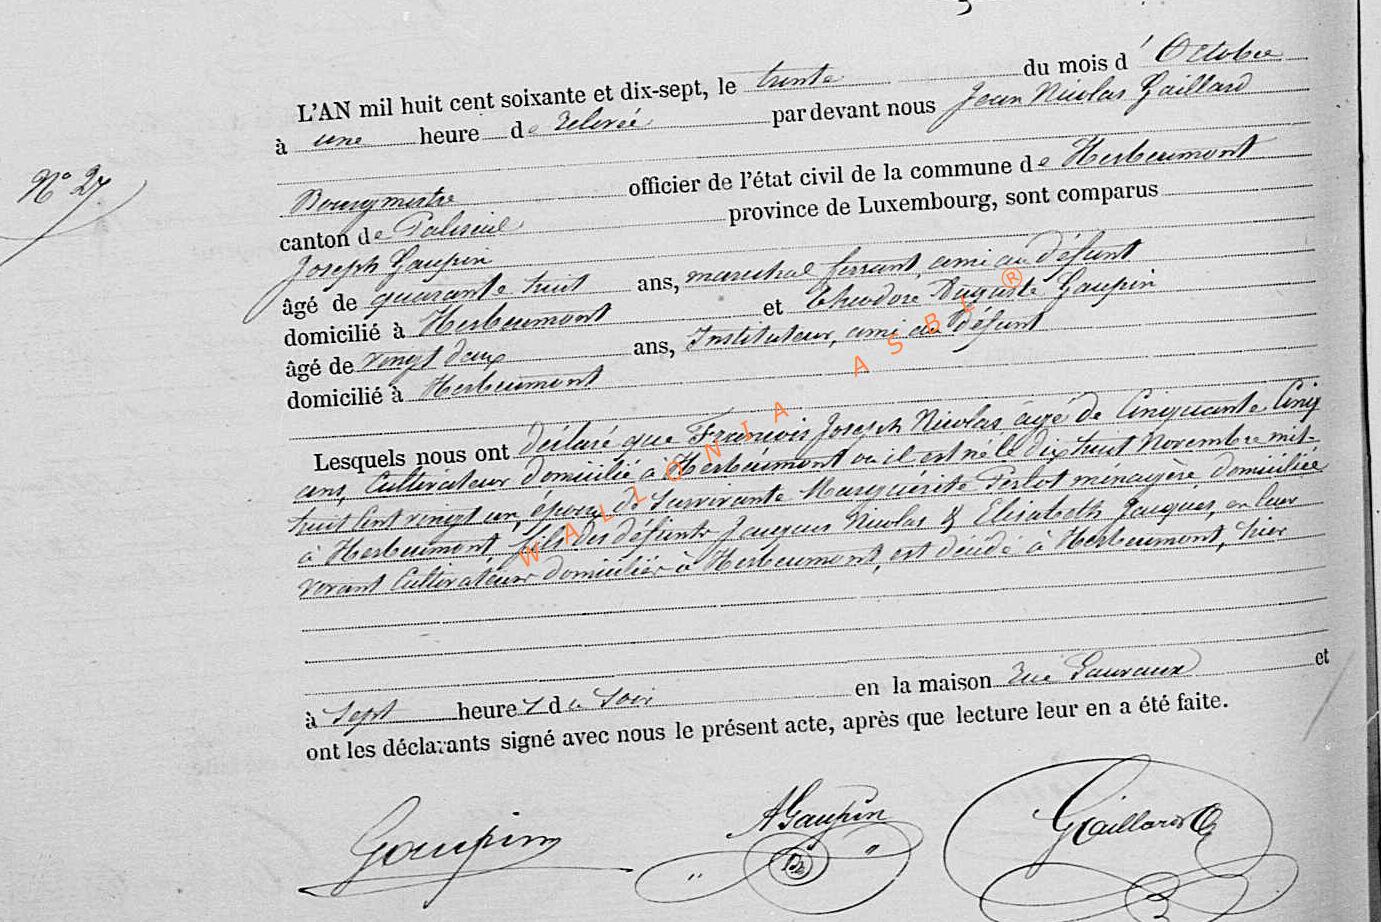 L'AN mil huit cent soixante et dix-sept, le trente du mois d' Octobre
à une heure de relevée par devant nous Jean Nicolas Gaillard
N° 27
Bourgmestre officier de l'état civil de la commune de Herbeumont
canton de Paliseul province de Luxembourg, sont comparus
Joseph Goupin
âgé de quarante huit ans, marechal ferrant, ami du défunt
domicilié à Herbeumont et Théodore Auguste Gaupin
âgé de vingt deux ans, Instituteur, ami du défunt
domicilié à Herbeumont
Lesquels nous ont déclaré que François Joseph Nicolas âgé de Cinquante Cinq
ans, Cultivateur domicilié à Herbeumont où il est né le dix huit Novembre mil-
huit Cent vingt un, époux de Survivante Marguérite Perlot ménagère, domiciliée
à Herbeumont, fils des défunts Jacques Nicolas & Elisabeth Jacques, en leur
vivant Cultivateurs domiciliés à Herbeumont, est décédé à Herbeumont, hier
à Sept heures de Soir en la maison rue et
ont les déclarants signé avec nous le présent acte, après que lecture leur en a été faite.
Goupin AGaupin Gaillard
WALLONIA ASBL ®